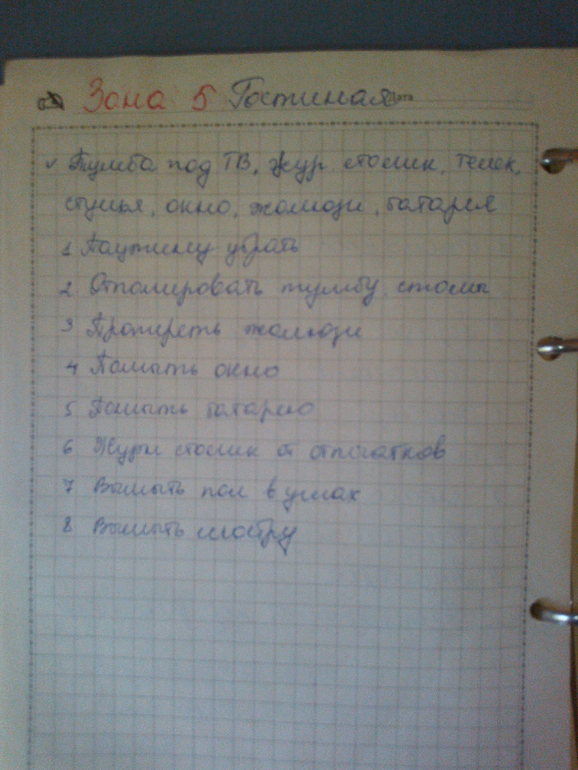 Зона 5 Гостиная Дата
✓ Тумба под ТВ, жур. столик, телек,
стулья, окно, жалюзи, батарея
1 Паутину убрать
2 Отполировать тумбу, столы
3 Протереть жалюзи
4 Помыть окно
5 Помыть батарею
6 Журн столик от отпечатков
7 Вымыть пол в углах
8 Вымыть люстру